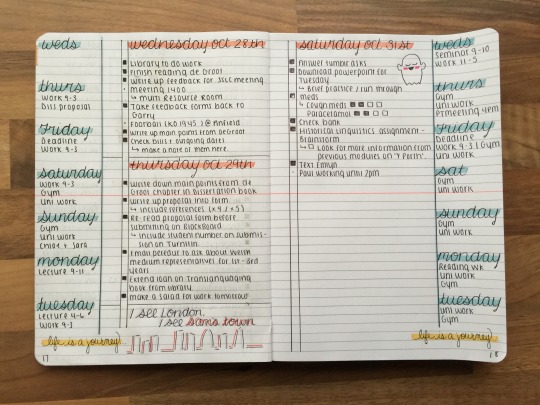 weds
thurs
Work 9-3
Diss proposal
Friday
Deadline
Work 9-3
Saturday
Work 9-3
Gym
Uni work
Sunday
Gym
Uni work
Chloe + Sara
monday
Lecture 9-11
tuesday
Lecture 4-6
Work 9-3
life is a journey!
17
wednesday oct 28th
Library to do work
Finish reading de Groot
Write up feedback for SSLC meeting
meeting 1400
↳ Arum Resource Room
Take feedback forms back to
Darry
Football (KO 1945) @ Anfield
Write up main points from deGroot
Check bills + outgoing dates
↳ make a note of them here.
thursday oct 29th
Write down main points from de
Groot chapter in Dissertation book
Write up proposal into form
↳ include references (x4/x5)
Re-read proposal form before
submitting on Blackboard
↳ include student number on submis-
sion on Turnitin
Email peredur to ask about Welsh
medium representatives for 1st-3rd
years
Extend loan on Translanguaging
book from library
make a salad for work tomorrow
I see London,
I see Sam's town
saturday oct 31st
Answer tumblr asks
Download powerpoint for
Tuesday
↳ Brief practice / run through
meds
↳ Cough meds
Paracetamol
Check bank
Historical Linguistics assignment -
Brainstorm
↳ Look for more information from
previous modules on 'Y Porth'.
Text Emlyn
Paul working until 2pm
weds
Seminar 9-10
Work 11-5
thurs
Gym
Uni work
PTmeeting 4pm
Friday
Deadline
Work 9-3 | Gym
Uni work
sat
Gym
Uni work
sunday
Gym
Uni work
monday
Reading wk
Uni work
Gym
tuesday
Uni work
Gym
life is a journey!
18